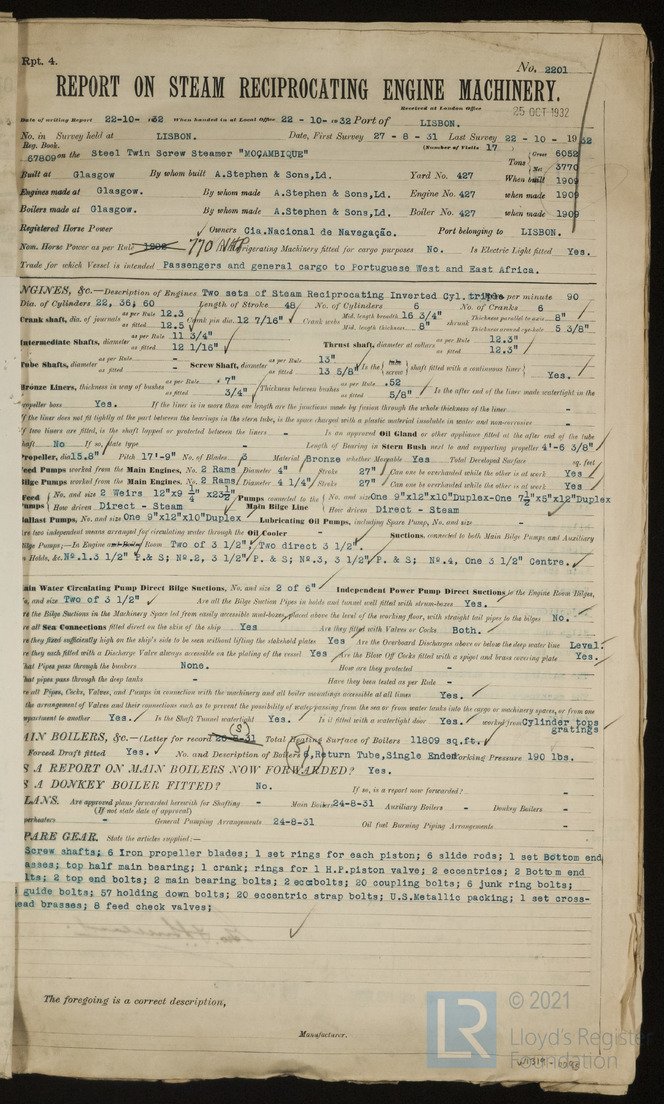 Rpt. 4.
No. 2201
REPORT ON STEAM RECIPROCATING ENGINE MACHINERY.
Received at London Office
25 OCT 1932
Date of writing Report 22-10- 1932 When handed in at Local Office 22 - 10 - 1932 Port of LISBON.
No. in Survey held at LISBON. Date, First Survey 27 - 8 - 31 Last Survey 22 - 10 - 1932
Reg. Book. (Number of Visits 17
67809 on the Steel Twin Screw Steamer "MOÇAMBIQUE" Tons Gross 6052
Net 3770
Built at Glasgow By whom built A.Stephen & Sons,Ld. Yard No. 427 When built 1909
Engines made at Glasgow. By whom made A.Stephen & Sons,Ld. Engine No. 427 when made 1909
Boilers made at Glasgow. By whom made A.Stephen & Sons,Ld. Boiler No. 427 when made 1909
Registered Horse Power Owners Cia.Nacional de Navegação. Port belonging to LISBON.
Nom. Horse Power as per Rule 770 NHP Refrigerating Machinery fitted for cargo purposes No. Is Electric Light fitted Yes.
Trade for which Vessel is intended Passengers and general cargo to Portuguese West and East Africa.
NGINES, &c.—Description of Engines Two sets of Steam Reciprocating Inverted Cyl. triple per minute 90
Dia. of Cylinders 22, 36, 60 Length of Stroke 48 No. of Cylinders 6 No. of Cranks 6
Crank shaft, dia. of journals as per Rule 12.3 as fitted 12.5 Crank pin dia. 12 7/16" Crank webs Mid. length breadth 16 3/4" Mid. length thickness 8" shrunk Thickness parallel to axis 8" Thickness around eyehole 5 3/8"
Intermediate Shafts, diameter as per Rule 11 3/4" as fitted 12 1/16" Thrust shaft, diameter at collars as per Rule 12.3" as fitted 12.3"
Tube Shafts, diameter as per Rule - as fitted - Screw Shaft, diameter as per Rule 13" as fitted 13 5/8" Is the screw shaft fitted with a continuous liner Yes.
Bronze Liners, thickness in way of bushes as per Rule .7" as fitted 3/4" Thickness between bushes as per Rule .52 as fitted 5/8" Is the after end of the liner made watertight in the
propeller boss Yes. If the liner is in more than one length are the junctions made by fusion through the whole thickness of the liner -
If the liner does not fit tightly at the part between the bearings in the stern tube, is the space charged with a plastic material insoluble in water and non-corrosive -
If two liners are fitted, is the shaft lapped or protected between the liners - Is an approved Oil Gland or other appliance fitted at the after end of the tube
shaft No If so, state type - Length of Bearing in Stern Bush next to and supporting propeller 4'-6 3/8"
Propeller, dia 15.8" Pitch 17'-9" No. of Blades 3 Material Bronze whether Moveable Yes Total Developed Surface sq. feet
Feed Pumps worked from the Main Engines, No. 2 Rams Diameter 4" Stroke 27" Can one be overhauled while the other is at work Yes
Bilge Pumps worked from the Main Engines, No. 2 Rams Diameter 4 1/4" Stroke 27" Can one be overhauled while the other is at work Yes
Feed Pumps No. and size 2 Weirs 12"x9 1/4" x23 1/2" Pumps connected to the Main Bilge Line No. and size One 9"x12"x10"Duplex-One 7 1/2"x5"x12"Duplex
How driven Direct - Steam How driven Direct - Steam
Ballast Pumps, No. and size One 9"x12"x10"Duplex Lubricating Oil Pumps, including Spare Pump, No. and size -
Are two independent means arranged for circulating water through the Oil Cooler - Suctions, connected to both Main Bilge Pumps and Auxiliary
Bilge Pumps;—In Engine Room Two of 3 1/2"; Two direct 3 1/2".
In Holds, &c. Nº.1.3 1/2" P.& S; Nº.2, 3 1/2" P.& S; Nº.3, 3 1/2"P.& S; Nº.4, One 3 1/2" Centre.
Main Water Circulating Pump Direct Bilge Suctions, No. and size 2 of 6" Independent Power Pump Direct Suctions to the Engine Room Bilges,
No. and size Two of 3 1/2" Are all the Bilge Suction Pipes in holds and tunnel well fitted with strum-boxes Yes.
Are the Bilge Suctions in the Machinery Space led from easily accessible mud-boxes, placed above the level of the working floor, with straight tail pipes to the bilges No.
Are all Sea Connections fitted direct on the skin of the ship Yes Are they fitted with Valves or Cocks Both.
Are they fixed sufficiently high on the ship's side to be seen without lifting the stokehold plates Yes Are the Overboard Discharges above or below the deep water line Level.
Are they each fitted with a Discharge Valve always accessible on the plating of the vessel Yes Are the Blow Off Cocks fitted with a spigot and brass covering plate Yes.
What Pipes pass through the bunkers None. How are they protected -
What pipes pass through the deep tanks - Have they been tested as per Rule -
Are all Pipes, Cocks, Valves, and Pumps in connection with the machinery and all boiler mountings accessible at all times Yes.
the arrangement of Valves and their connections such as to prevent the possibility of water passing from the sea or from water tanks into the cargo or machinery spaces, or from one
compartment to another Yes. Is the Shaft Tunnel watertight Yes. Is it fitted with a watertight door Yes. worked from Cylinder tops
gratings
AIN BOILERS, &c.—(Letter for record (S) Total Heating Surface of Boilers 11809 sq.ft.
Forced Draft fitted Yes. No. and Description of Boilers 6,Return Tube,Single Ended Working Pressure 190 lbs.
S A REPORT ON MAIN BOILERS NOW FORWARDED? Yes.
S A DONKEY BOILER FITTED? No. If so, is a report now forwarded? -
LANS. Are approved plans forwarded herewith for Shafting - Main Boilers 24-8-31 Auxiliary Boilers - Donkey Boilers -
(If not state date of approval)
Superheaters - General Pumping Arrangements 24-8-31 Oil fuel Burning Piping Arrangements -
PARE GEAR. State the articles supplied:—
Screw shafts; 6 Iron propeller blades; 1 set rings for each piston; 6 slide rods; 1 set Bottom end
asses; top half main bearing; 1 crank; rings for 1 H.P.piston valve; 2 eccentrics; 2 Bottom end
lts; 2 top end bolts; 2 main bearing bolts; 20 coupling bolts; 6 junk ring bolts;
guide bolts; 57 holding down bolts; 20 eccentric strap bolts; U.S.Metallic packing; 1 set cross-
ead brasses; 8 feed check valves;
The foregoing is a correct description,
Manufacturer.
LR
© 2021
Lloyd's Register
Foundation